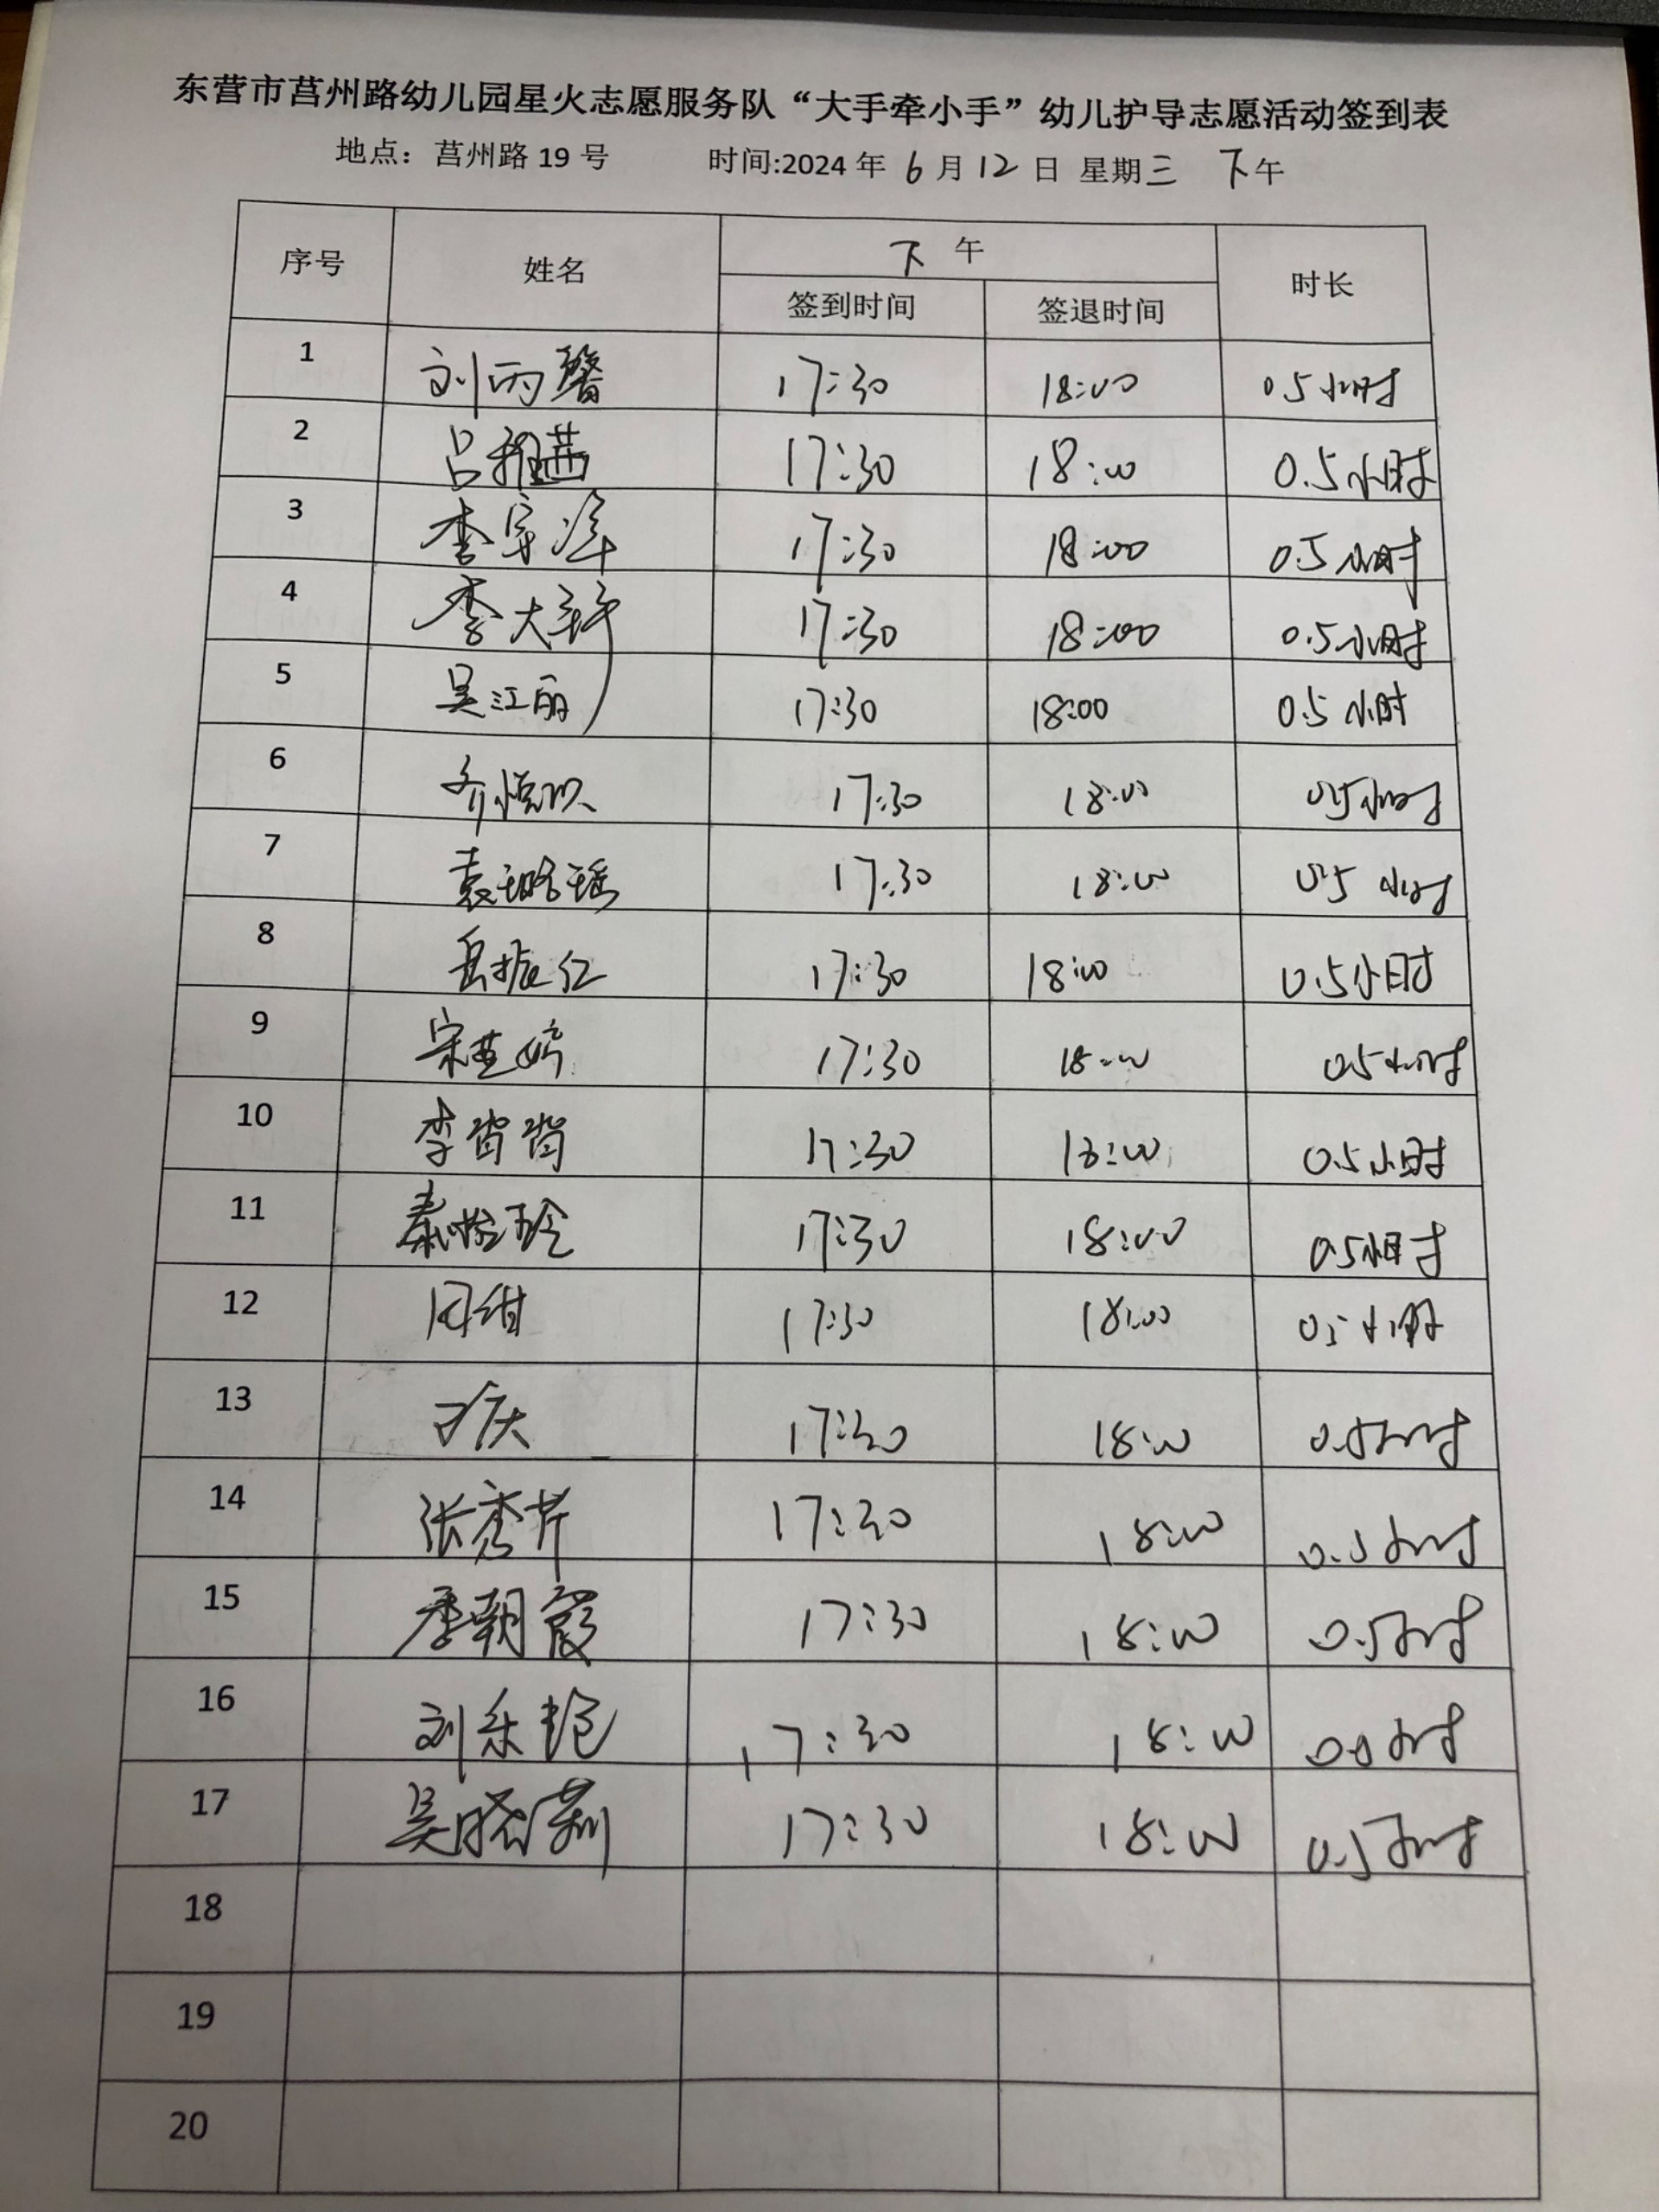 东营市莒州路幼儿园星火志愿服务队“大手牵小手”幼儿护导志愿活动签到表
地点：莒州路 19 号 时间:2024 年 6 月 12 日 星期三 下午
序号 姓名 下 午 时长
签到时间 签退时间
1 刘雨馨 17:30 18:00 0.5小时
2 吕雅茜 17:30 18:00 0.5小时
3 李 17:30 18:00 0.5小时
4 李大轩 17:30 18:00 0.5小时
5 吴江丽 17:30 18:00 0.5小时
6 齐 17:30 18:00 0.5小时
7 袁璐瑶 17:30 18:00 0.5小时
8 岳振红 17:30 18:00 0.5小时
9 宋婷 17:30 18:00 0.5小时
10 李肖肖 17:30 18:00 0.5小时
11 秦玲 17:30 18:00 0.5小时
12 周甜 17:30 18:00 0.5小时
13 庆 17:30 18:00 0.5小时
14 张秀芹 17:30 18:00 0.5小时
15 季朝霞 17:30 18:00 0.5小时
16 刘乐艳 17:30 18:00 0.5小时
17 吴晓莉 17:30 18:00 0.5小时
18
19
20